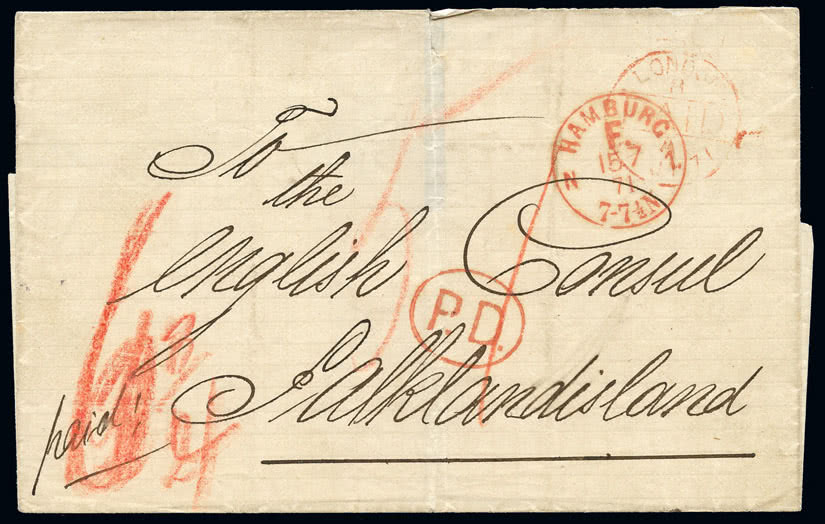 To
the
english Consul
Falklandisland
paid!
HAMBURG
F.
15 7
71
7-7½N
P.D.
LOND
71
6